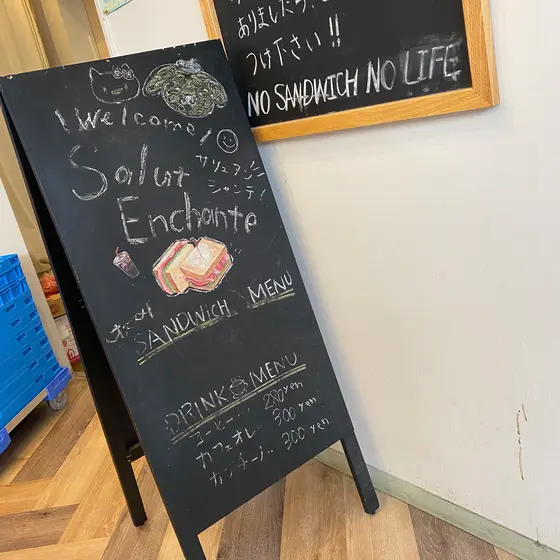 ありましたら、
つけ下さい!!
NO SANDWICH NO LIFE
! Welcome!
Salut
サリュアンシャンテ!
Enchante
SANDWICH MENU
DRINK MENU
コーヒー.. 280yen
カフェオレ.. 300 yen
300 yen